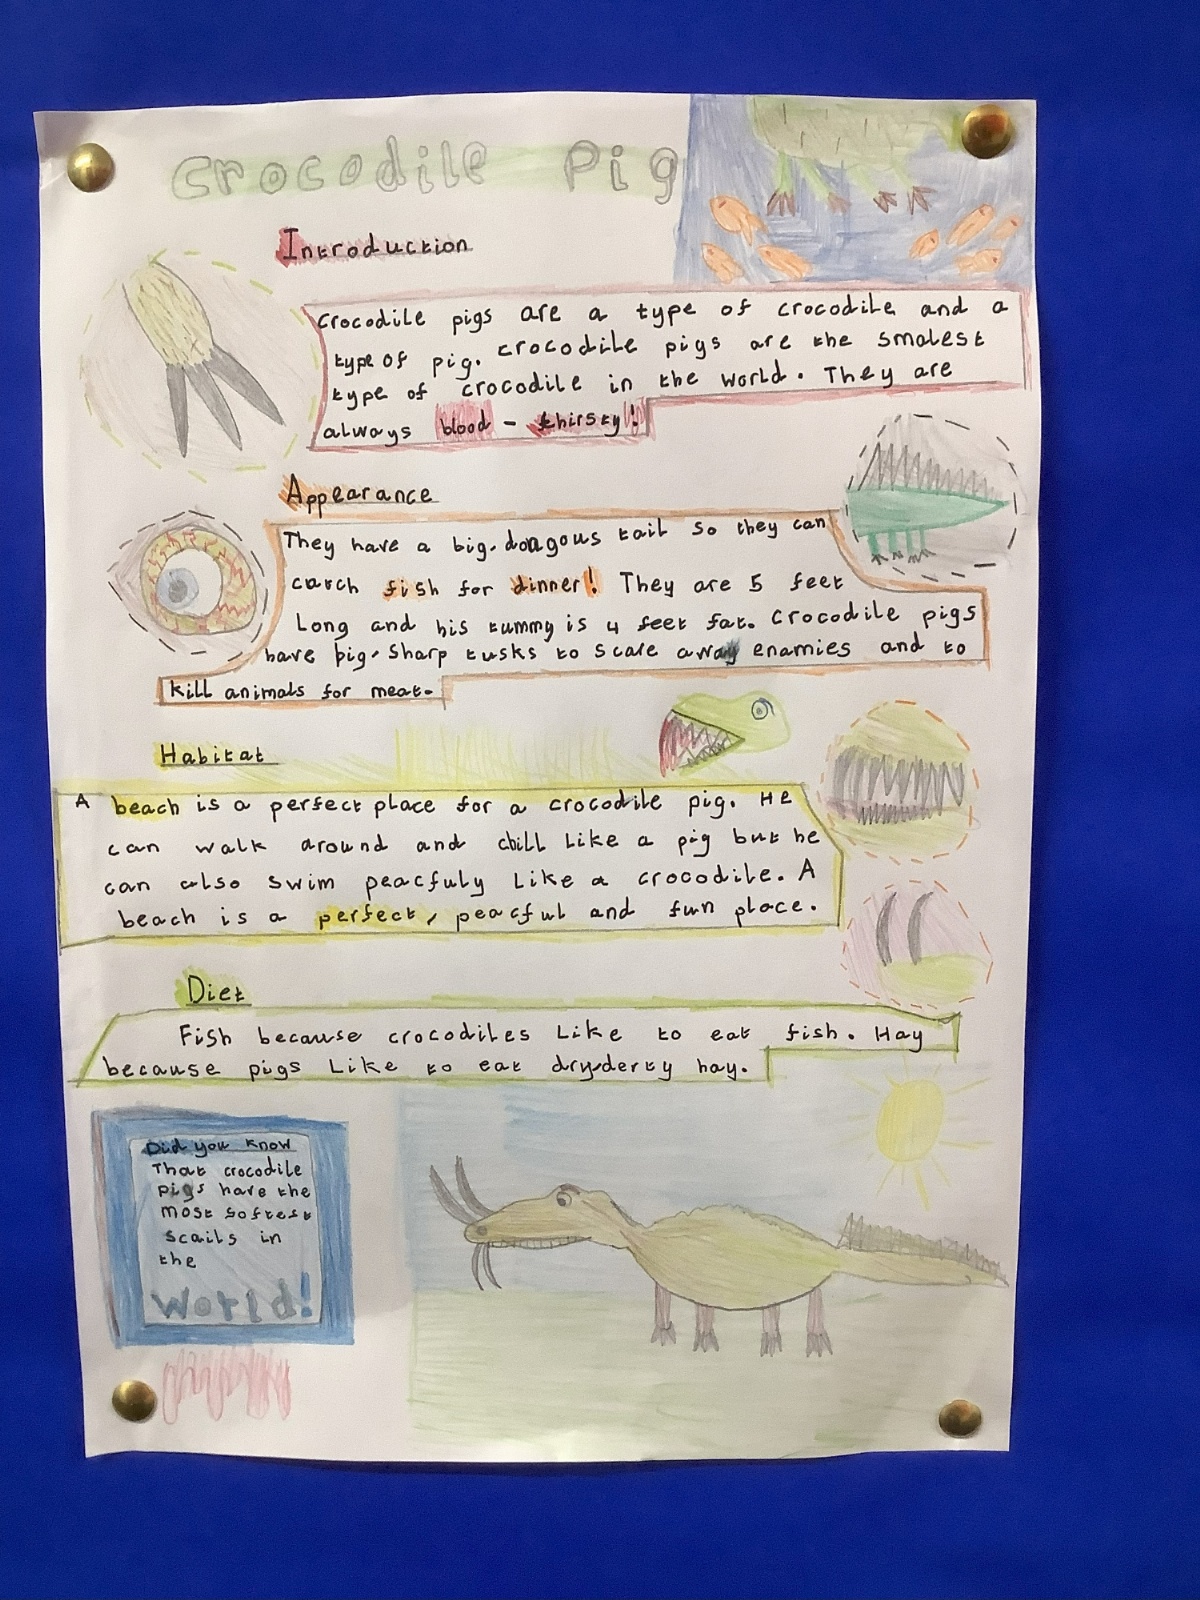 Crocodile Pig
Introduction
Crocodile pigs are a type of crocodile and a
type of pig. crocodile pigs are the smalest
type of crocodile in the world. They are
always blood - thirsty!
Appearance
They have a big, tail so they can
catch fish for dinner! They are 5 feet
Long and his tummy is 4 feet fat. Crocodile pigs
have big, sharp tusks to scare away enamies and to
kill animals for meat.
Habitat
A beach is a perfect place for a crocodile pig. He
can walk around and chill like a pig but he
can also swim peacfuly like a crocodile. A
beach is a perfect, peacful and fun place.
Diet
Fish because crocodiles like to eat fish. Hay
because pigs like to eat hay.
Did you know
That crocodile
pigs have the
most softest
scails in
the
World!